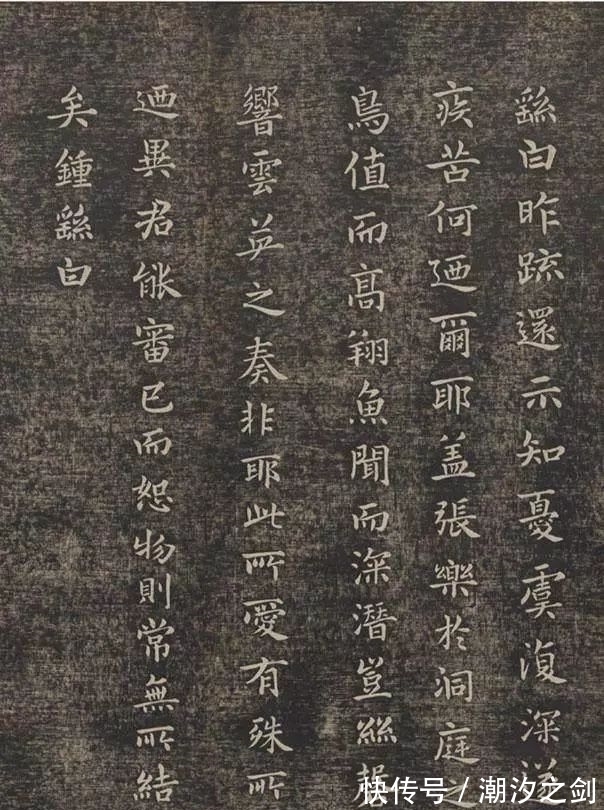 繇白昨疏還示知憂虞復深
疾苦何迺爾耶盖張樂於洞庭
鳥值而高翔魚聞而深潛豈絲
響雲英之奏非耶此所愛有殊所
迺異君能審己而恕物則常無所結
矣鍾繇白
快传号 / 潮汐之剑